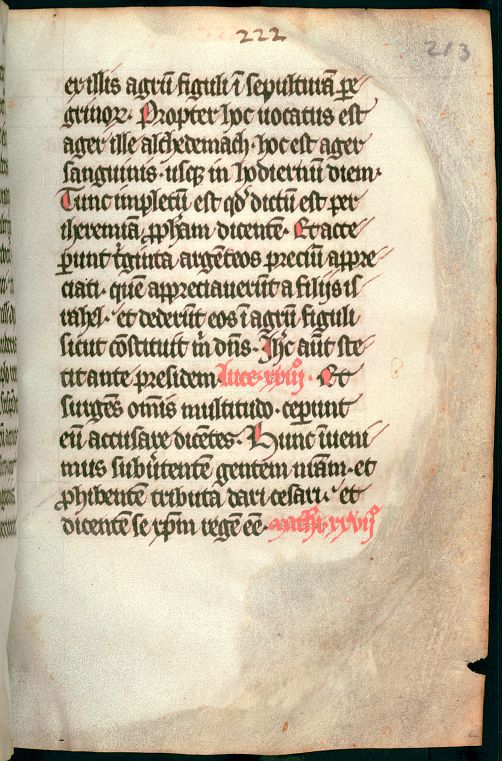 222
213
ex illis agrū figuli ī sepulturā ꝑe
grinoꝝ. Propter hoc uocatus est
ager ille aschedemach. hoc est ager
sanguinis. usqꝫ in hodiernū diem.
Tunc impletū est qd dictū est per
iheremiā ꝓpham dicente. Et acce
perunt triginta argēteos preciū appre
ciati. quē appreciauerūt a filijs is
rahel. et dederūt eos ī agrū figuli
sicut cōstituit m̄ dn̄s. Ihc aūt ste
tit ante presidem luce. xxiijº. Et
surgēs om̄is multitudo. ceperunt
eū accusare dicētes. Hunc īueni
mus subuertentē gentem nr̄am. et
ꝓhibentē tributa dari cesari. et
dicentē se xp̄m regē eē. math. xxvijº